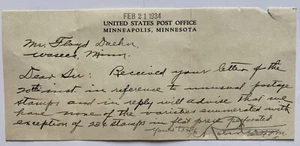 FEB 21 1934
UNITED STATES POST OFFICE
MINNEAPOLIS, MINNESOTA
Mr. Floyd
Waseca, Minn.
Dear Sir: Received your letter of the
20th inst in reference to unusual postage
stamps and in reply will advise that we
have none of the varieties enumerated with
exception of 22¢ stamps in flat press perforated